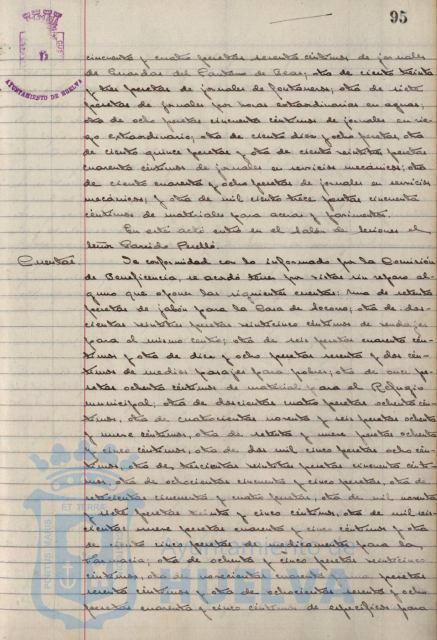 95
AYUNTAMIENTO DE HUELVA
cincuenta y cuatro pesetas sesenta céntimos de jornales
de Guardas del Pantano de Beas; otra de ciento treinta
y tres pesetas de jornales de fontaneros; otra de siete
pesetas de jornales por horas extraordinarias en aguas;
otra de ocho pesetas cincuenta céntimos de jornales en rie-
go extraordinario; otra de ciento diez y ocho pesetas, otra
de ciento quince pesetas y otra de ciento veintisiete pesetas
cuarenta céntimos de jornales en servicios mecánicos; otra
de ciento cuarenta y ocho pesetas de jornales en servicios
mecánicos; y otra de mil ciento trece pesetas cincuenta
céntimos de materiales para aceras y pavimentos.
En este acto entra en el Salón de sesiones el
señor Garrido Perelló.
Cuentas. De conformidad con lo informado por la Comisión
de Beneficencia, se acordó tener por vistas sin reparo al-
guno que oponer las siguientes cuentas: Una de setenta
pesetas de jabón para la Casa de Socorro; otra de dos-
cientas veintisiete pesetas veinticinco céntimos de vendajes
para el mismo centro; otra de seis pesetas cuarenta cén-
timos y otra de diez y ocho pesetas noventa y dos cén-
timos de medios pasajes para pobres; otra de once pe-
setas ochenta céntimos de material para el Refugio
municipal; otra de doscientas cuatro pesetas ochenta cén-
timos, otra de cuatrocientas noventa y seis pesetas ochenta
y nueve céntimos, otra de setenta y nueve pesetas ochenta
y cinco céntimos, otra de dos mil cinco pesetas ocho cén-
timos, otra de trescientas veintisiete pesetas cincuenta cénti-
mos, otra de ochocientas cincuenta y cinco pesetas, otra de
setecientas cincuenta y cuatro pesetas, otra de mil noventa
y siete pesetas treinta y cinco céntimos, otra de mil seis-
cientas nueve pesetas cuarenta y cinco céntimos y otra
de ciento cinco pesetas de medicamentos para la
Farmacia; otra de ochenta y cinco pesetas veinticinco
céntimos, otra de novecientas cuarenta y una pesetas
sesenta céntimos y otra de ochocientas sesenta y ocho
pesetas cuarenta y cinco céntimos de específicos para
PORTUS MARIS
ET TERRE
Ayuntamiento de
HUELVA